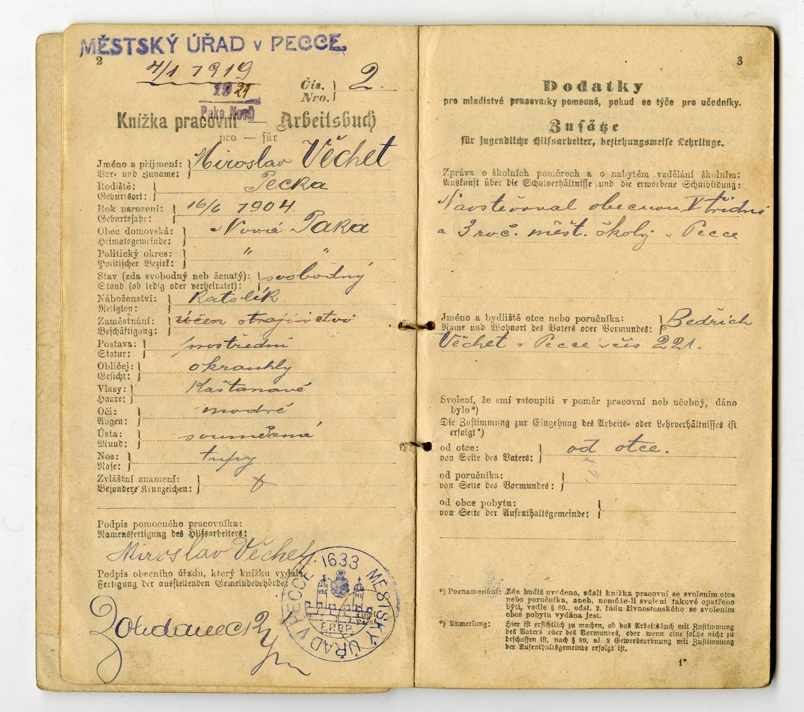 MĚSTSKÝ ÚŘAD v PECCE.
2
4/1 1919
1921
Čís.
Nro. } 2.
Knížka pracovní — Arbeitsbuch
pro – für
Jméno a příjmení: } Miroslav Věchet
Vor- und Zuname:
Rodiště: } Pecka
Geburtsort:
Rok narození: } 16/6 1904
Geburtsjahr:
Obec domovská: } Nová Paka
Heimatsgemeinde:
Politický okres: } " "
Politischer Bezirk:
Stav (zda svobodný neb ženatý): } svobodný
Stand (ob ledig oder verheiratet):
Náboženství: } Katolík
Religion:
Zaměstnání: } učen strojnictví
Beschäftigung:
Postava: } prostřední
Statur:
Obličej: } okrouhlý
Gesicht:
Vlasy: } Kaštanové
Haare:
Oči: } modré
Augen:
Ústa: } souměrná
Mund:
Nos: } tupý
Nase:
Zvláštní znamení: }
Besondere Kennzeichen:
Podpis pomocného pracovníka:
Namensfertigung des Hilfsarbeiters:
Miroslav Věchet
Podpis obecního úřadu, který knížku vydal:
Fertigung der ausstellenden Gemeindebehörde:
MĚSTSKÝ ÚŘAD V PECCE 1633
3
Dodatky
pro mladistvé pracovníky pomocné, pokud se týče pro učedníky.
Zusätze
für jugendliche Hilfsarbeiter, beziehungsweise Lehrlinge.
Zpráva o školních poměrech a o nabytém vzdělání školním:
Auskunft über die Schulverhältnisse und die erworbene Schulbildung:
Navštěvoval obecnou V třídní
a 3 roč. měšt. školy v Pecce
Jméno a bydliště otce nebo poručníka: } Bedřich
Name und Wohnort des Vaters oder Vormundes:
Věchet v Pecce včís 221.
Svolení, že smí vstoupiti v poměr pracovní neb učebný, dáno
bylo*)
Die Zustimmung zur Eingehung des Arbeits- oder Lehrverhältnisses ist
erfolgt*)
od otce: } od otce.
von Seite des Vaters:
od poručníka: }
von Seite des Vormundes:
od obce pobytu: }
von Seite der Aufenthaltsgemeinde:
*) Poznamenání: Zde budiž uvedeno, zdali knížka pracovní se svolením otce
nebo poručníka, aneb, nemůže-li svolení takové opatřeno
býti, vedle § 80., odst. 2. řádu živnostenského se svolením
obce pobytu vydána jest.
*) Anmerkung: Hier ist ersichtlich zu machen, ob das Arbeitsbuch mit Zustimmung
des Vaters oder des Vormundes, oder wenn eine solche nicht zu
beschaffen ist, nach § 80, al. 2 Gewerbeordnung mit Zustimmung
der Aufenthaltsgemeinde erfolgt ist.
1*